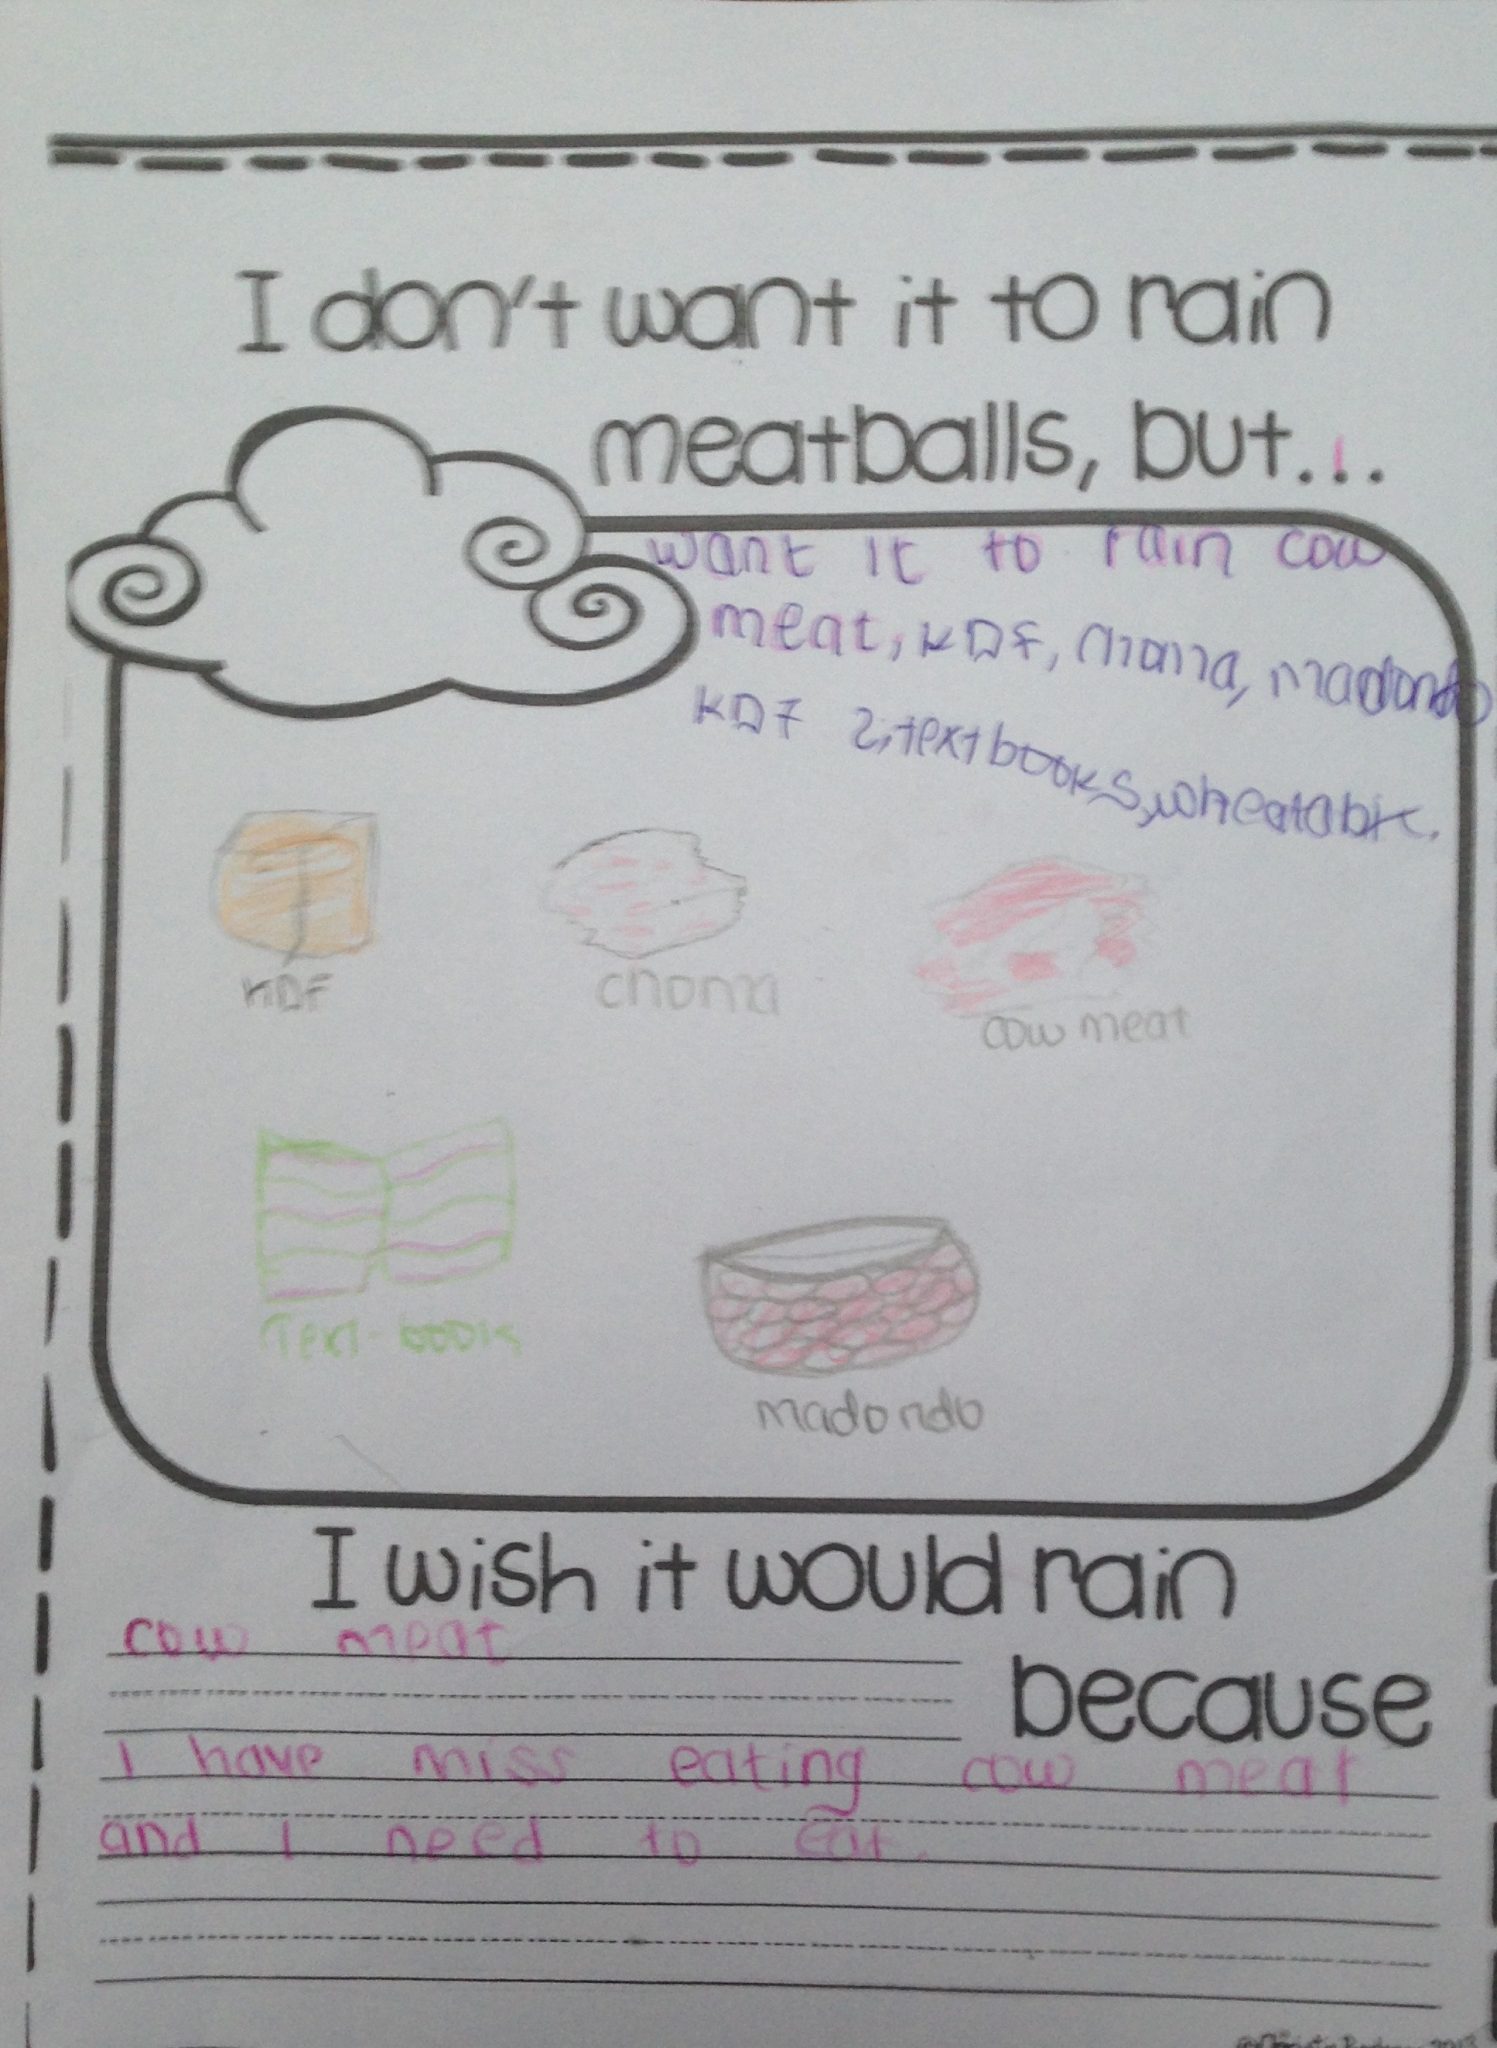 I don't want it to rain
meatballs, but...
I
want it to rain cow
meat, KDF, choma, madondo
KDF 2, textbooks, wheatabic.
KDF
choma
cow meat
Text-book
madondo
I wish it would rain
cow meat
because
I have miss eating cow meat
and I need to eat.
2013